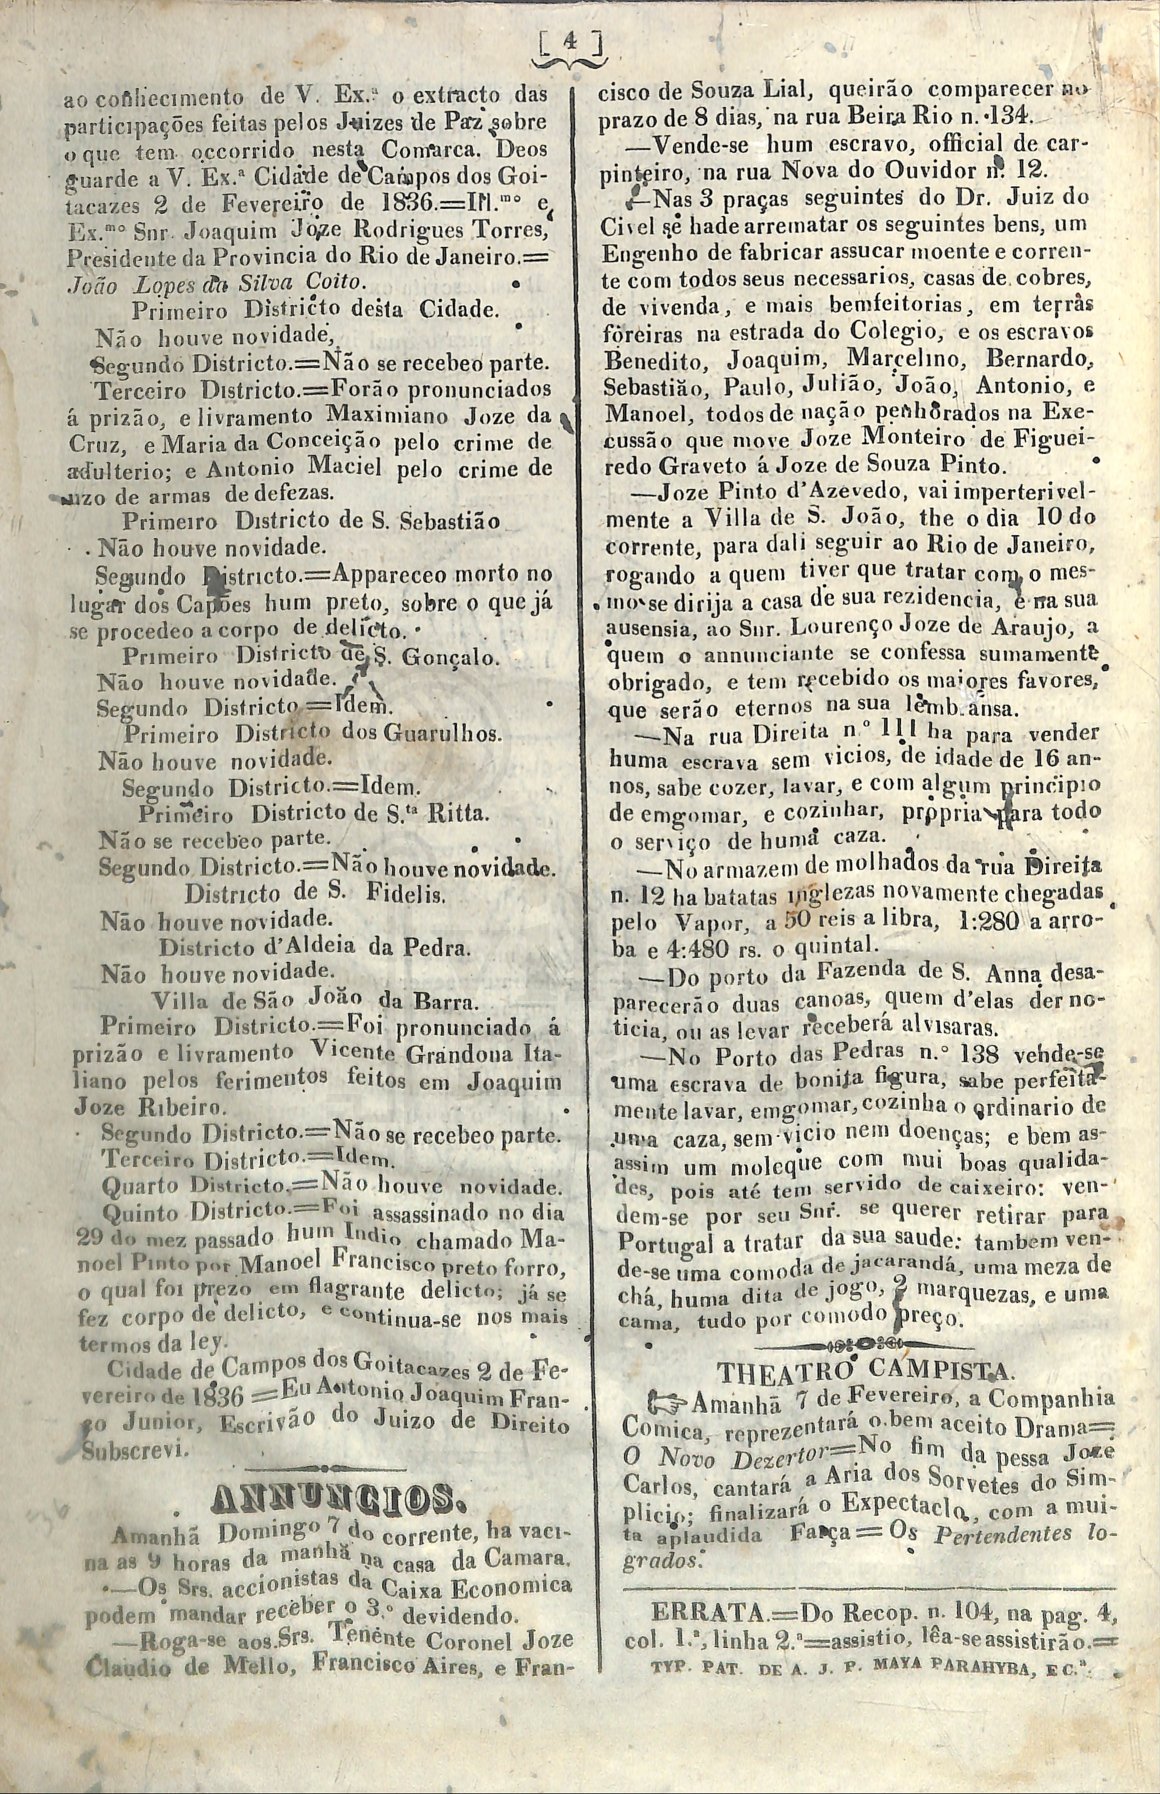 [ 4 ]
ao conhecimento de V. Ex.ª o extracto das
participações feitas pelos Juizes de Paz sobre
o que tem occorrido nesta Comarca. Deos
guarde a V. Ex.ª Cidade de Campos dos Goi-
tacazes 2 de Fevereiro de 1836.=Ill.mo e
Ex.mo Snr. Joaquim Joze Rodrigues Torres,
Presidente da Provincia do Rio de Janeiro.=
João Lopes da Silva Coito.
Primeiro Districto desta Cidade.
Não houve novidade,
Segundo Districto.=Não se recebeo parte.
Terceiro Districto.=Forão pronunciados
á prizão, e livramento Maximiano Joze da
Cruz, e Maria da Conceição pelo crime de
adulterio; e Antonio Maciel pelo crime de
uzo de armas de defezas.
Primeiro Districto de S. Sebastião
Não houve novidade.
Segundo Districto.=Appareceo morto no
lugar dos Capões hum preto, sobre o que já
se procedeo a corpo de delicto.
Primeiro Districto de S. Gonçalo.
Não houve novidade.
Segundo Districto=Idem.
Primeiro Districto dos Guarulhos.
Não houve novidade.
Segundo Districto.=Idem.
Primeiro Districto de S.ta Ritta.
Não se recebeo parte.
Segundo Districto.=Não houve novidade.
Districto de S. Fidelis.
Não houve novidade.
Districto d'Aldeia da Pedra.
Não houve novidade.
Villa de São João da Barra.
Primeiro Districto.=Foi pronunciado á
prizão e livramento Vicente Grandona Ita-
liano pelos ferimentos feitos em Joaquim
Joze Ribeiro.
Segundo Districto.=Não se recebeo parte.
Terceiro Districto.=Idem.
Quarto Districto.=Não houve novidade.
Quinto Districto.=Foi assassinado no dia
29 do mez passado hum Indio chamado Ma-
noel Pinto por Manoel Francisco preto forro,
o qual foi prezo em flagrante delicto; já se
fez corpo de delicto, e continua-se nos mais
termos da ley.
Cidade de Campos dos Goitacazes 2 de Fe-
vereiro de 1836=Eu Antonio Joaquim Fran-
co Junior, Escrivão do Juizo de Direito
Subscrevi.
ANNUNCIOS.
Amanhã Domingo 7 do corrente, ha vaci-
na as 9 horas da manhã na casa da Camara.
—Os Srs. accionistas da Caixa Economica
podem mandar receber o 3.º devidendo.
—Roga-se aos Srs. Tenente Coronel Joze
Claudio de Mello, Francisco Aires, e Fran-
cisco de Souza Lial, queirão comparecer no
prazo de 8 dias, na rua Beira Rio n. 134.
—Vende-se hum escravo, official de car-
pinteiro, na rua Nova do Ouvidor n. 12.
—Nas 3 praças seguintes do Dr. Juiz do
Civel se hade arrematar os seguintes bens, um
Engenho de fabricar assucar moente e corren-
te com todos seus necessarios, casas de cobres,
de vivenda, e mais bemfeitorias, em terras
foreiras na estrada do Colegio, e os escravos
Benedito, Joaquim, Marcelino, Bernardo,
Sebastião, Paulo, Julião, João, Antonio, e
Manoel, todos de nação penhorados na Exe-
cussão que move Joze Monteiro de Figuei-
redo Graveto á Joze de Souza Pinto.
—Joze Pinto d'Azevedo, vai imperterivel-
mente a Villa de S. João, the o dia 10 do
corrente, para dali seguir ao Rio de Janeiro,
rogando a quem tiver que tratar com o mes-
mo se dirija a casa de sua rezidencia, e na sua
ausensia, ao Snr. Lourenço Joze de Araujo, a
quem o annunciante se confessa sumamente
obrigado, e tem recebido os maiores favores,
que serão eternos na sua lembransa.
—Na rua Direita n.º 111 ha para vender
huma escrava sem vicios, de idade de 16 an-
nos, sabe cozer, lavar, e com algum principio
de emgomar, e cozinhar, propria para todo
o serviço de huma caza.
—No armazem de molhados da rua Direita
n. 12 ha batatas inglezas novamente chegadas
pelo Vapor, a 50 reis a libra, 1:280 a arro-
ba e 4:480 rs. o quintal.
—Do porto da Fazenda de S. Anna desa-
parecerão duas canoas, quem d'elas der no-
ticia, ou as levar receberá alvisaras.
—No Porto das Pedras n.º 138 vende-se
uma escrava de bonita figura, sabe perfeita-
mente lavar, emgomar, cozinha o ordinario de
uma caza, sem vicio nem doenças; e bem as-
assim um moleque com mui boas qualida-
des, pois até tem servido de caixeiro: ven-
dem-se por seu Snr. se querer retirar para
Portugal a tratar da sua saude: tambem ven-
de-se uma comoda de jacarandá, uma meza de
chá, huma dita de jogo, 2 marquezas, e uma
cama, tudo por comodo preço.
THEATRO CAMPISTA.
☞Amanhã 7 de Fevereiro, a Companhia
Comica, reprezentará o bem aceito Drama=
O Novo Dezertor=No fim da pessa Joze
Carlos, cantará a Aria dos Sorvetes do Sim-
plicio; finalizará o Expectaclo, com a mui-
ta aplaudida Farça=Os Pertendentes lo-
grados.
ERRATA.=Do Recop. n. 104, na pag. 4,
col. 1.ª, linha 2.ª=assistio, lêa-se assistirão.=
TYP. PAT. DE A. J. P. MAYA PARAHYBA, E C.ª